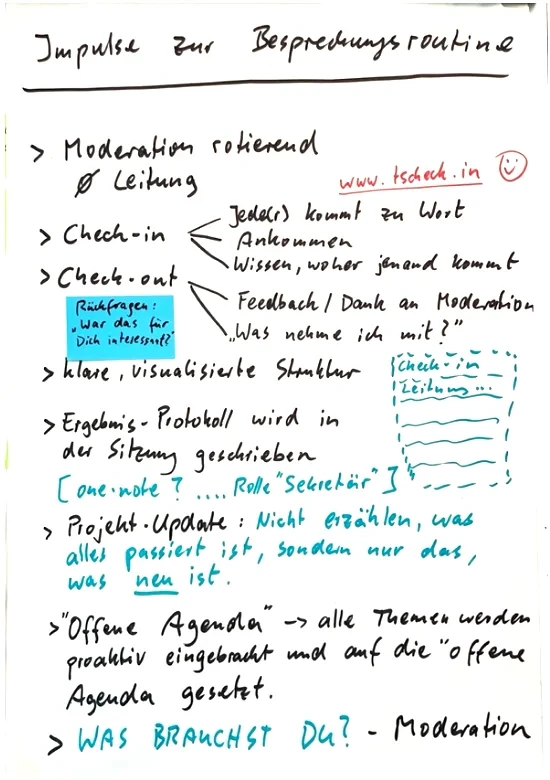 Impulse zur Besprechungsroutine
> Moderation rotierend
Ø Leitung
www.tscheck.in
> Check-in
Jede(r) kommt zu Wort
Ankommen
Wissen, woher jemand kommt
> Check-out
Feedback / Dank an Moderation
„Was nehme ich mit?"
Rückfragen:
„War das für
Dich interessant?"
> klare, visualisierte Struktur
Check-in
Leitung...
> Ergebnis-Protokoll wird in
der Sitzung geschrieben
[one-note? .... Rolle "Sekretär"]
> Projekt-Update: Nicht erzählen, was
alles passiert ist, sondern nur das,
was neu ist.
> "Offene Agenda" -> alle Themen werden
proaktiv eingebracht und auf die "offene
Agenda gesetzt.
> WAS BRAUCHST DU? - Moderation